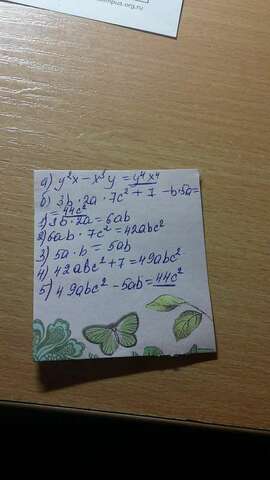 mpus.org.ru
а) y²x - x³y = y⁴x⁴
б) 3b · 2a · 7c² + 7 - b·5a =
= 44c²
1) 3b · 2a = 6ab
2) 6ab · 7c² = 42abc²
3) 5a · b = 5ab
4) 42abc² + 7 = 49abc²
5) 49abc² - 5ab = 44c²